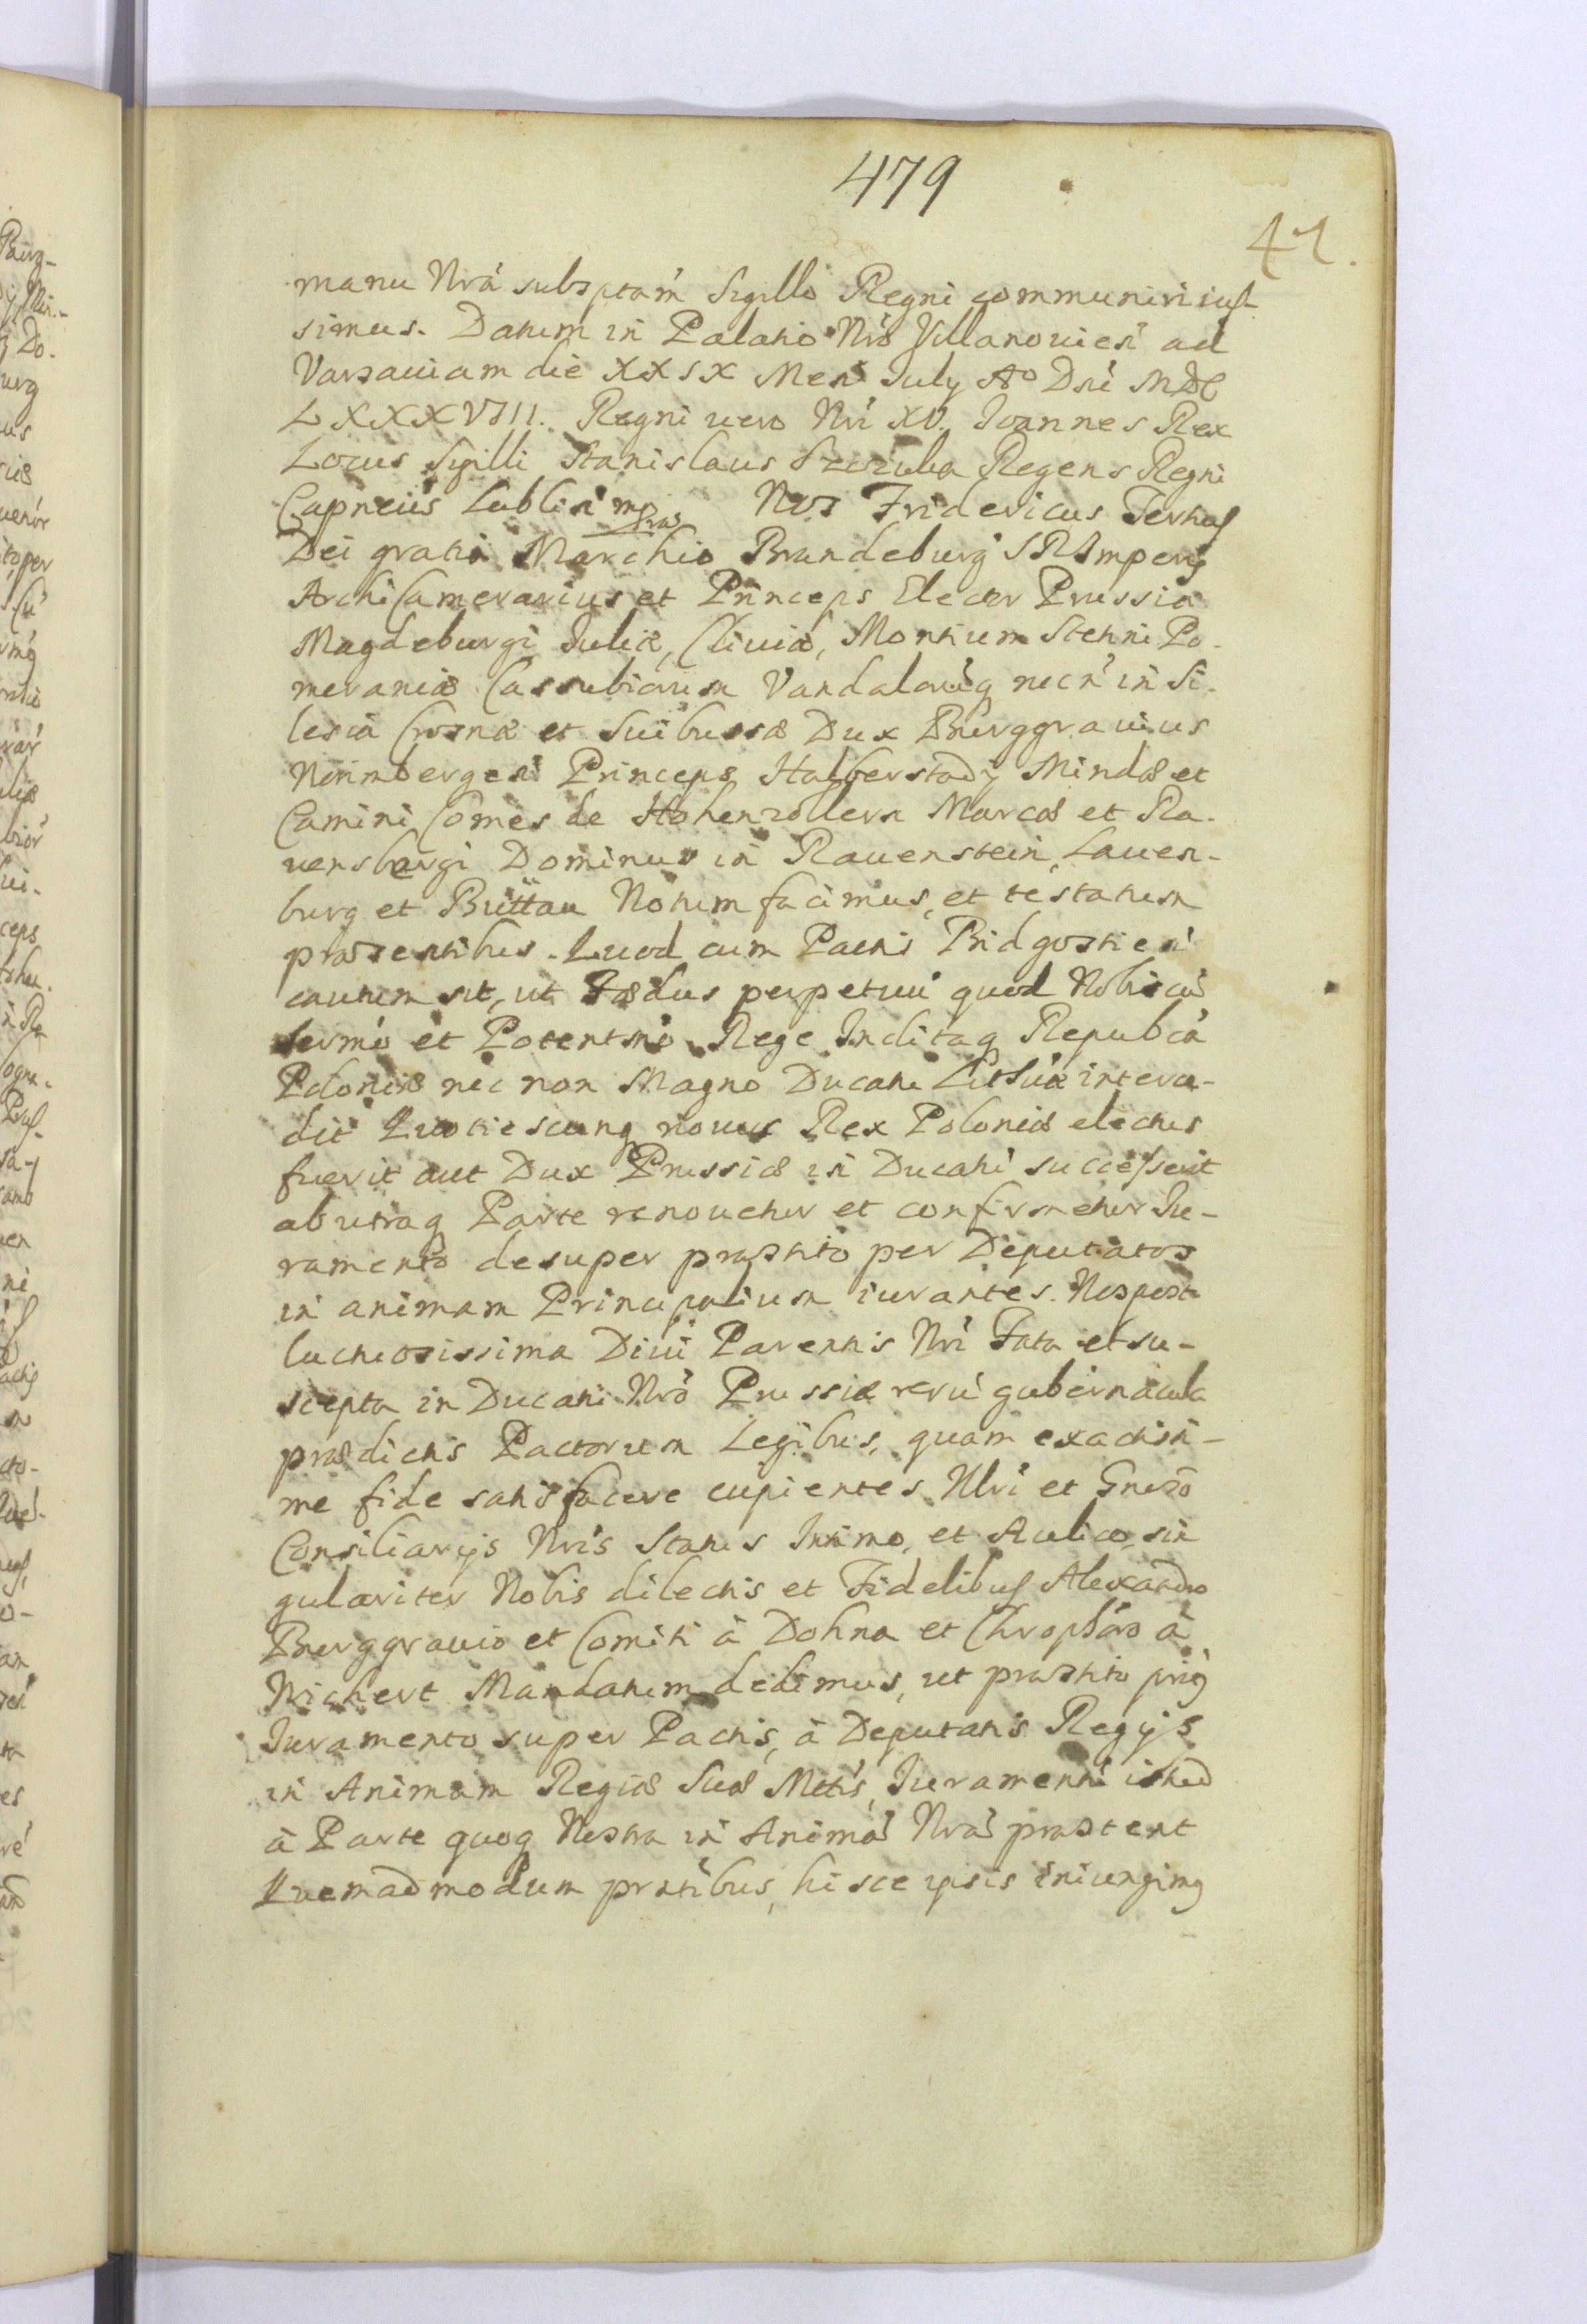 479
41.
manu Nrã subsptam Sigillo Regni communiri ius-
simus. Datum in Palatio Nrõ Villanovien ad
Varsaviam die XXIX Men July Aº Dni MDC
LXXXVIII. Regni vero Nri XV. Joannes Rex
Locus Sigilli Stanislaus Szczuka Regens Regni
Capneus Lublin mp Nos Fridericus Tertius
Dei gratia Marchio Brandeburg SRImperij
ArchiCamerarius et Princeps Elector Prussiæ
Magdeburgi Juliæ, Cliviæ, Montium Stetini Po-
meraniæ Cassubiorum Vandalorũq necñ in Si-
lesia Crosnæ et Suibussæ Dux Burggravius
Norimbergen Princeps Halberstadij Mindæ et
Camini Comes de Hohenzollern Marcæ et Ra-
vensbergi Dominus in Ravenstein, Lauen-
burg et Büttau Notum facimus, et testatum
præsentibus. Quod cum Pactis Bidgostien
cautum sit, ut Fædus perpetuũ quod Nobis cũ
Sermo et Potentmo Rege Inclitaq Repubca
Poloniæ nec non Magno Ducatu Litthuæ interce-
dit Quotiescunq novus Rex Poloniæ electus
fuerit aut Dux Prussiæ in Ducatũ successerit
ab utraq Parte renovetur et confirmetur Ju-
ramento desuper præstito per Deputatos
in animam Principalium iurantes. Nos post
luctuosissima Divi Parentis Nri Fata et su-
scepta in Ducatu Nro Prussiæ rerũ gubernacula
prædictis Pactorum Legibus, quam exactissi-
me fide satisfacere cupientes Illri et Gneroso
Consiliarijs Nris Status Intimo, et Aulico, sin
gulariter Nobis dilectis et Fidelibus Alexandro
Burggravio et Comiti à Dohna et Chrophoro à
Wichert Mandatum dedimus, ut præstito prig
Juramento super Pactis, à Deputatis Regijs
in Animam Regiæ Suæ Mttis, Juramentũ istud
à Parte quoq Nostra in Animã Nrã præstent
Quemadmodum pntibus, hisce ipsis iniungimg